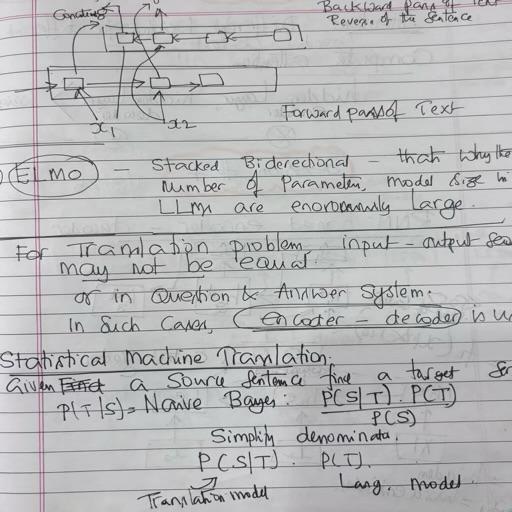 Backward pass of Text
Reverse of the Sentence
x1
x2
Forward pass of Text
ELMO - Stacked Biderectional - that why the
Number of Parameters, model size in
LLMs are enoromously large.
For Translation problem input - output
may not be equal.
or in Question & Answer System.
In Such Cases, encoder - decoder is
Statistical Machine Translation.
Given a Source Sentence find a target
P(T|S) = Naive Bayes: P(S|T) . P(T)
P(S)
Simplify denominata.
P(S|T) . P(T).
Translation model
Lang. model.